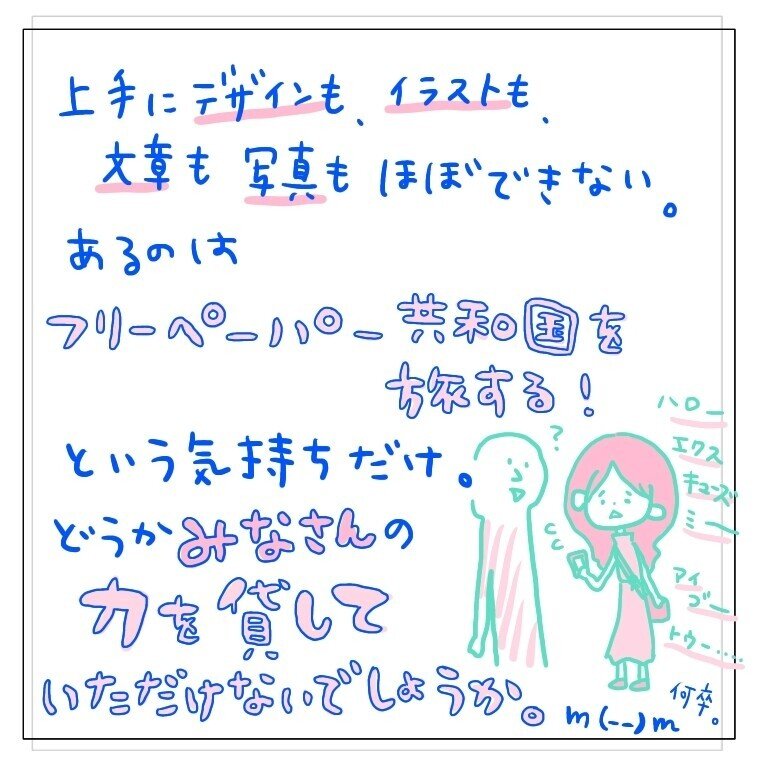 上手にデザインも、イラストも、
文章も写真もほぼできない。
あるのは
フリーペーパー共和国を
旅する!
という気持ちだけ。
どうかみなさんの
力を貸して
いただけないでしょうか。
?
ハロー
エクス
キューズ
ミー
アイ
ゴー
トゥー……
何卒。
m(--)m